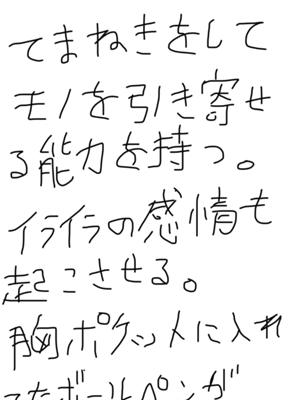 てまねきをして
モノを引き寄せ
る能力を持つ。
イライラの感情も
起こさせる。
胸ポケットに入れ
てたボールペンが